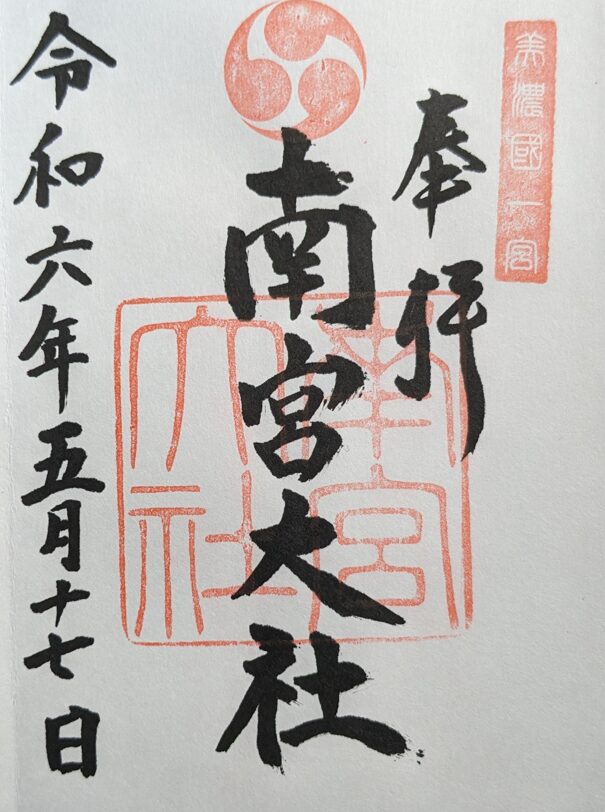 美濃國一宮
奉拝
南宮大社
南宮大社
令和六年五月十七日